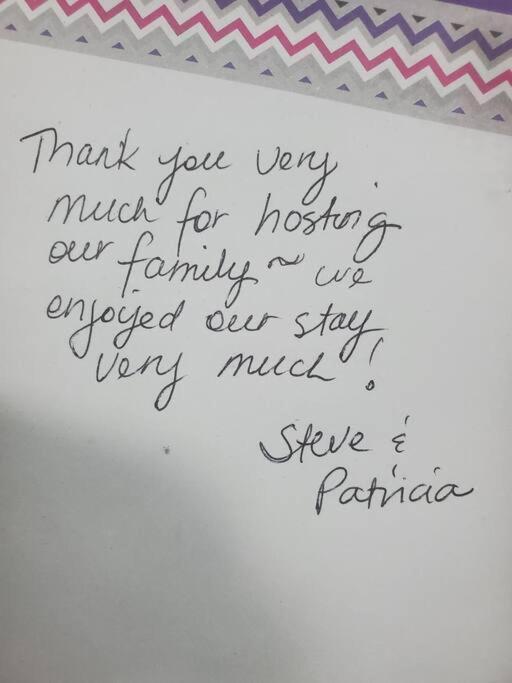 Thank you very
much for hosting
our family ~ we
enjoyed our stay
very much!
Steve &
Patricia